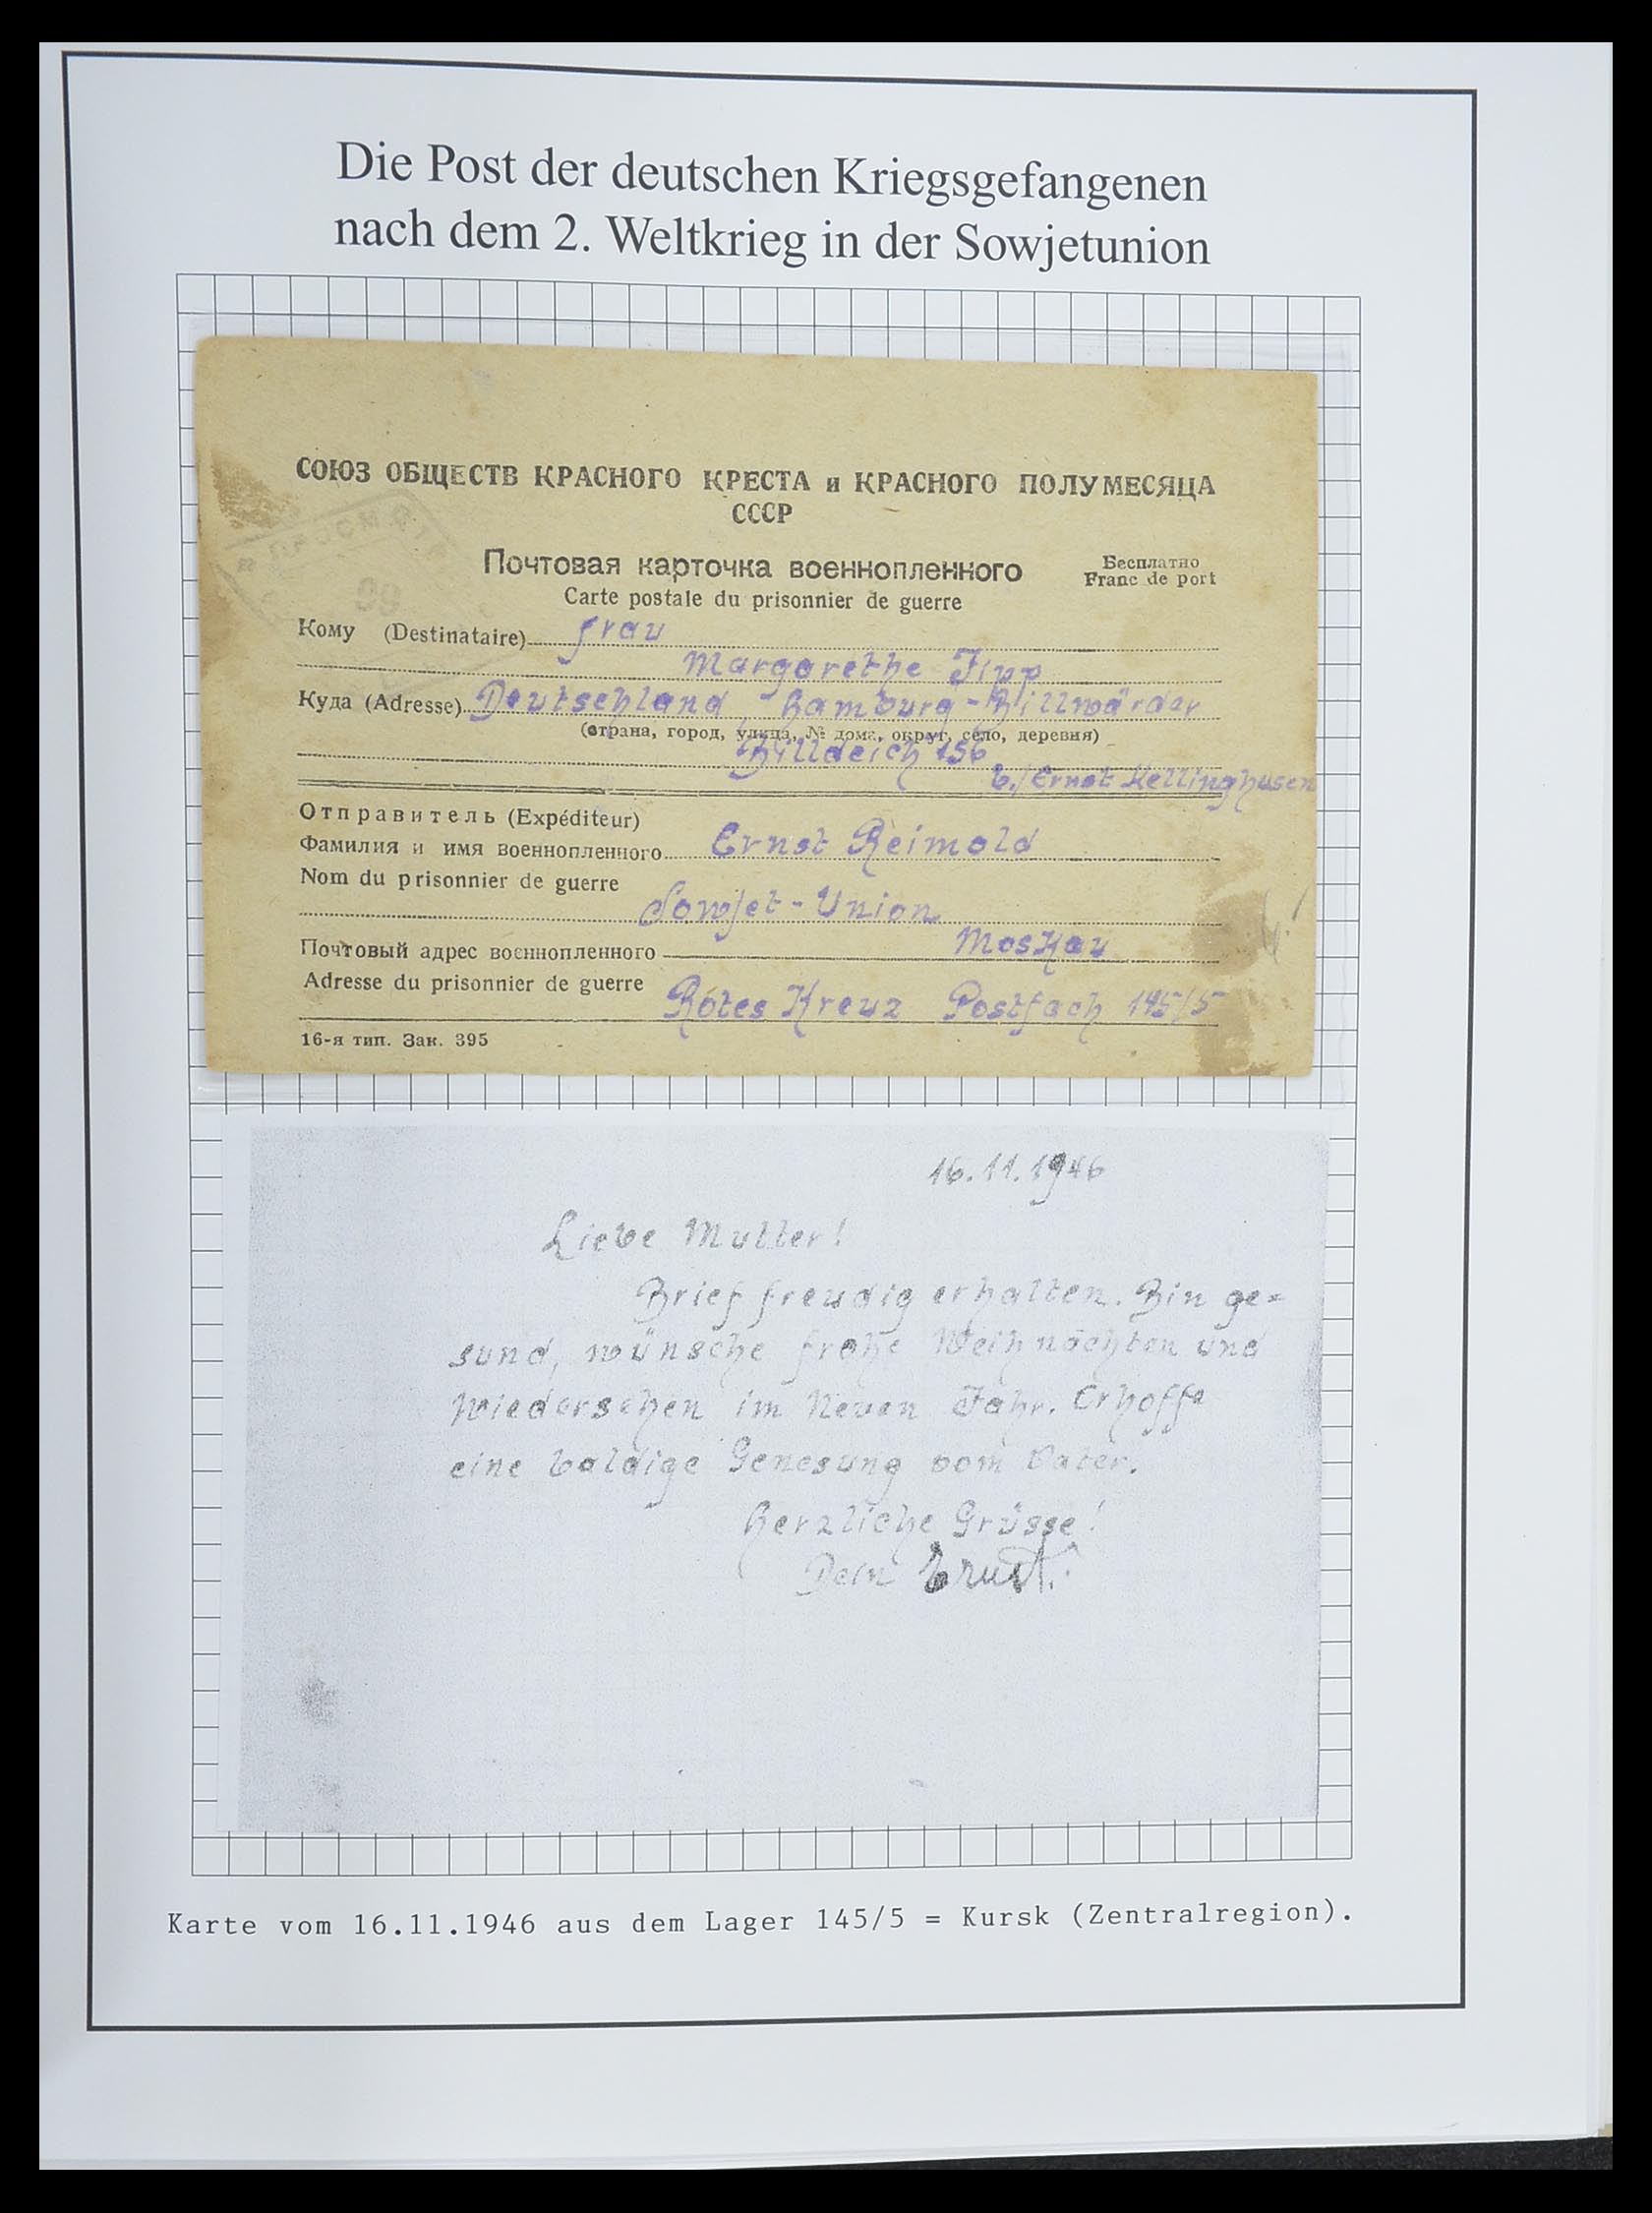 Die Post der deutschen Kriegsgefangenen
nach dem 2. Weltkrieg in der Sowjetunion
СОЮЗ ОБЩЕСТВ КРАСНОГО КРЕСТА и КРАСНОГО ПОЛУМЕСЯЦА
СССР
Почтовая карточка военнопленного
Бесплатно
Carte postale du prisonnier de guerre
Franc de port
Кому (Destinataire) Frau
Margarethe
Куда (Adresse) Deutschland, Hamburg-Billwärder
(страна, город, улица, № дома, округ, село, деревня)
Billdeich 156
b./Ernst Kellinghusen
Отправитель (Expéditeur)
Фамилия и имя военнопленного Ernst Reimold
Nom du prisonnier de guerre
Sowjet-Union
Почтовый адрес военнопленного Moskau
Adresse du prisonnier de guerre
Rotes Kreuz Postfach 145/5
16-я тип. Зак. 395
16.11.1946
Liebe Mutter!
Brief freudig erhalten. Bin ge=
sund, wünsche frohe Weihnachten und
Wiedersehen im Neuen Jahr. Erhoffe
eine baldige Genesung vom Vater.
Herzliche Grüsse!
Dein Ernst.
Karte vom 16.11.1946 aus dem Lager 145/5 = Kursk (Zentralregion).